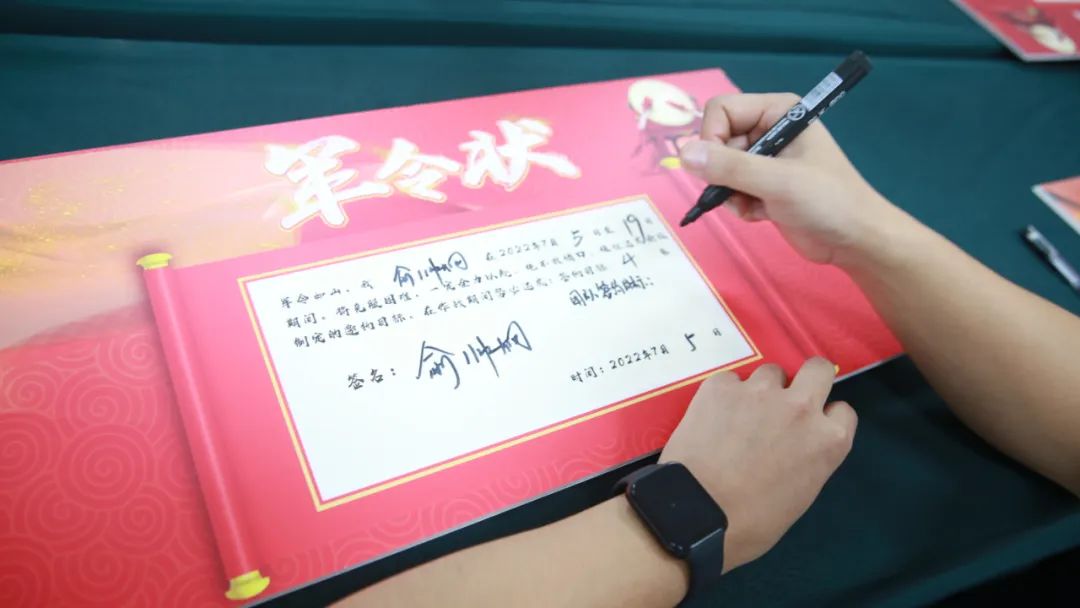 军令状
军令如山，我 俞帅桐 在2022年7月 5 日至 19 日
期间，将克服困难，一定全力以赴，绝不找借口，确保完成
制定的签约目标，在作战期间誓必达成：签约目标 4
团队签约目标：
签名：俞帅桐
时间：2022年7月 5 日